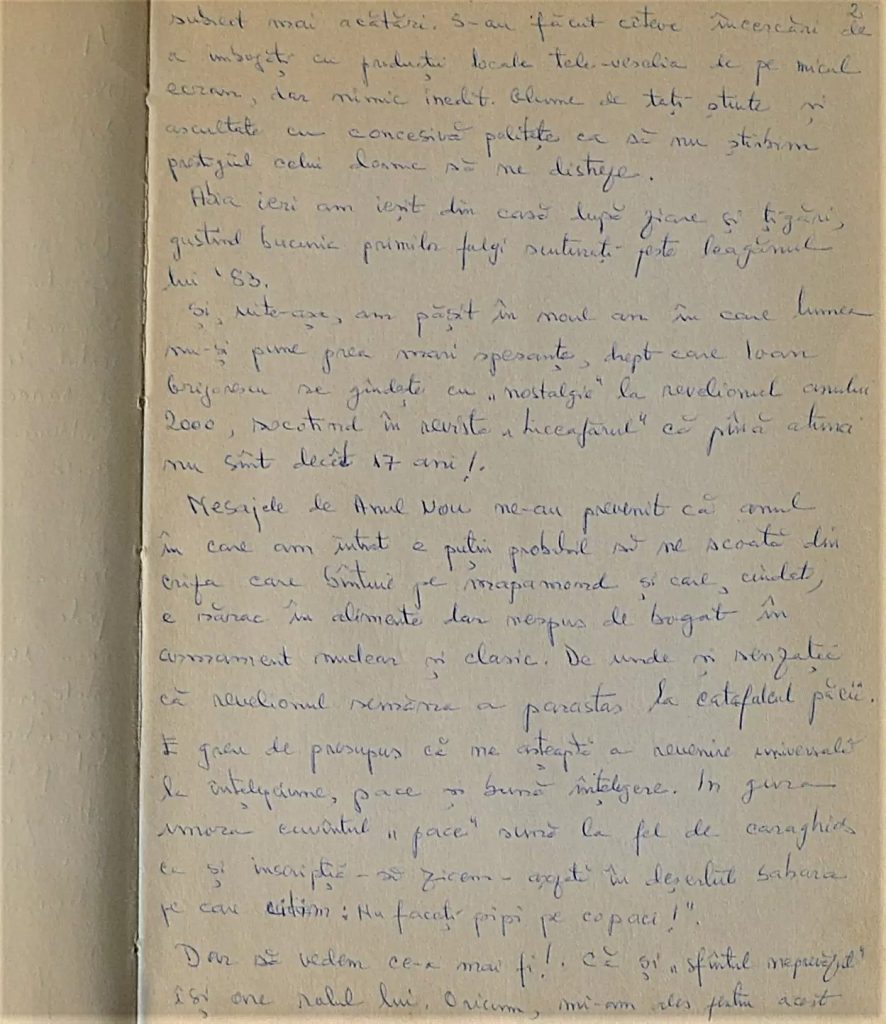 2
subiect mai acătări. S-au făcut cîteva încercări de
a îmbogăți cu producții locale tele-veselia de pe micul
ecran, dar nimic inedit. Glume de toți știute și
ascultate cu concesivă politețe ca să nu știrbim
prestigiul celui dornic să ne distreze.
Abia ieri am ieșit din casă după ziare și țigări,
gustînd bucuria primilor fulgi scuturați peste leagănul
lui '83.
Și, uite-așa, am pășit în noul an în care lumea
nu-și pune prea mari speranțe, drept care Ioan
Grigorescu se gîndește cu „nostalgie" la revelionul anului
2000, socotind în revista „Luceafărul" că pînă atunci
nu sînt decît 17 ani!.
Mesajele de Anul Nou ne-au prevenit că anul
în care am intrat e puțin probabil să ne scoată din
criza care bîntuie pe mapamond și care, ciudat,
e sărac în alimente dar nespus de bogat în
armament nuclear și clasic. De unde și senzația
că revelionul semăna a parastas la catafalcul păcii.
E greu de presupus că ne așteaptă o revenire universală
la înțelepciune, pace și bună înțelegere. In gura
unora cuvîntul „pace" sună la fel de caraghios
ca și inscripția - să zicem - așezată în deșertul Sahara
pe care citim: Nu faceți pipi pe copaci!".
Dar să vedem ce-a mai fi!. Că și „sfîntul neprevăzut"
își are rolul lui. Oricum, mi-am ales pentru acest